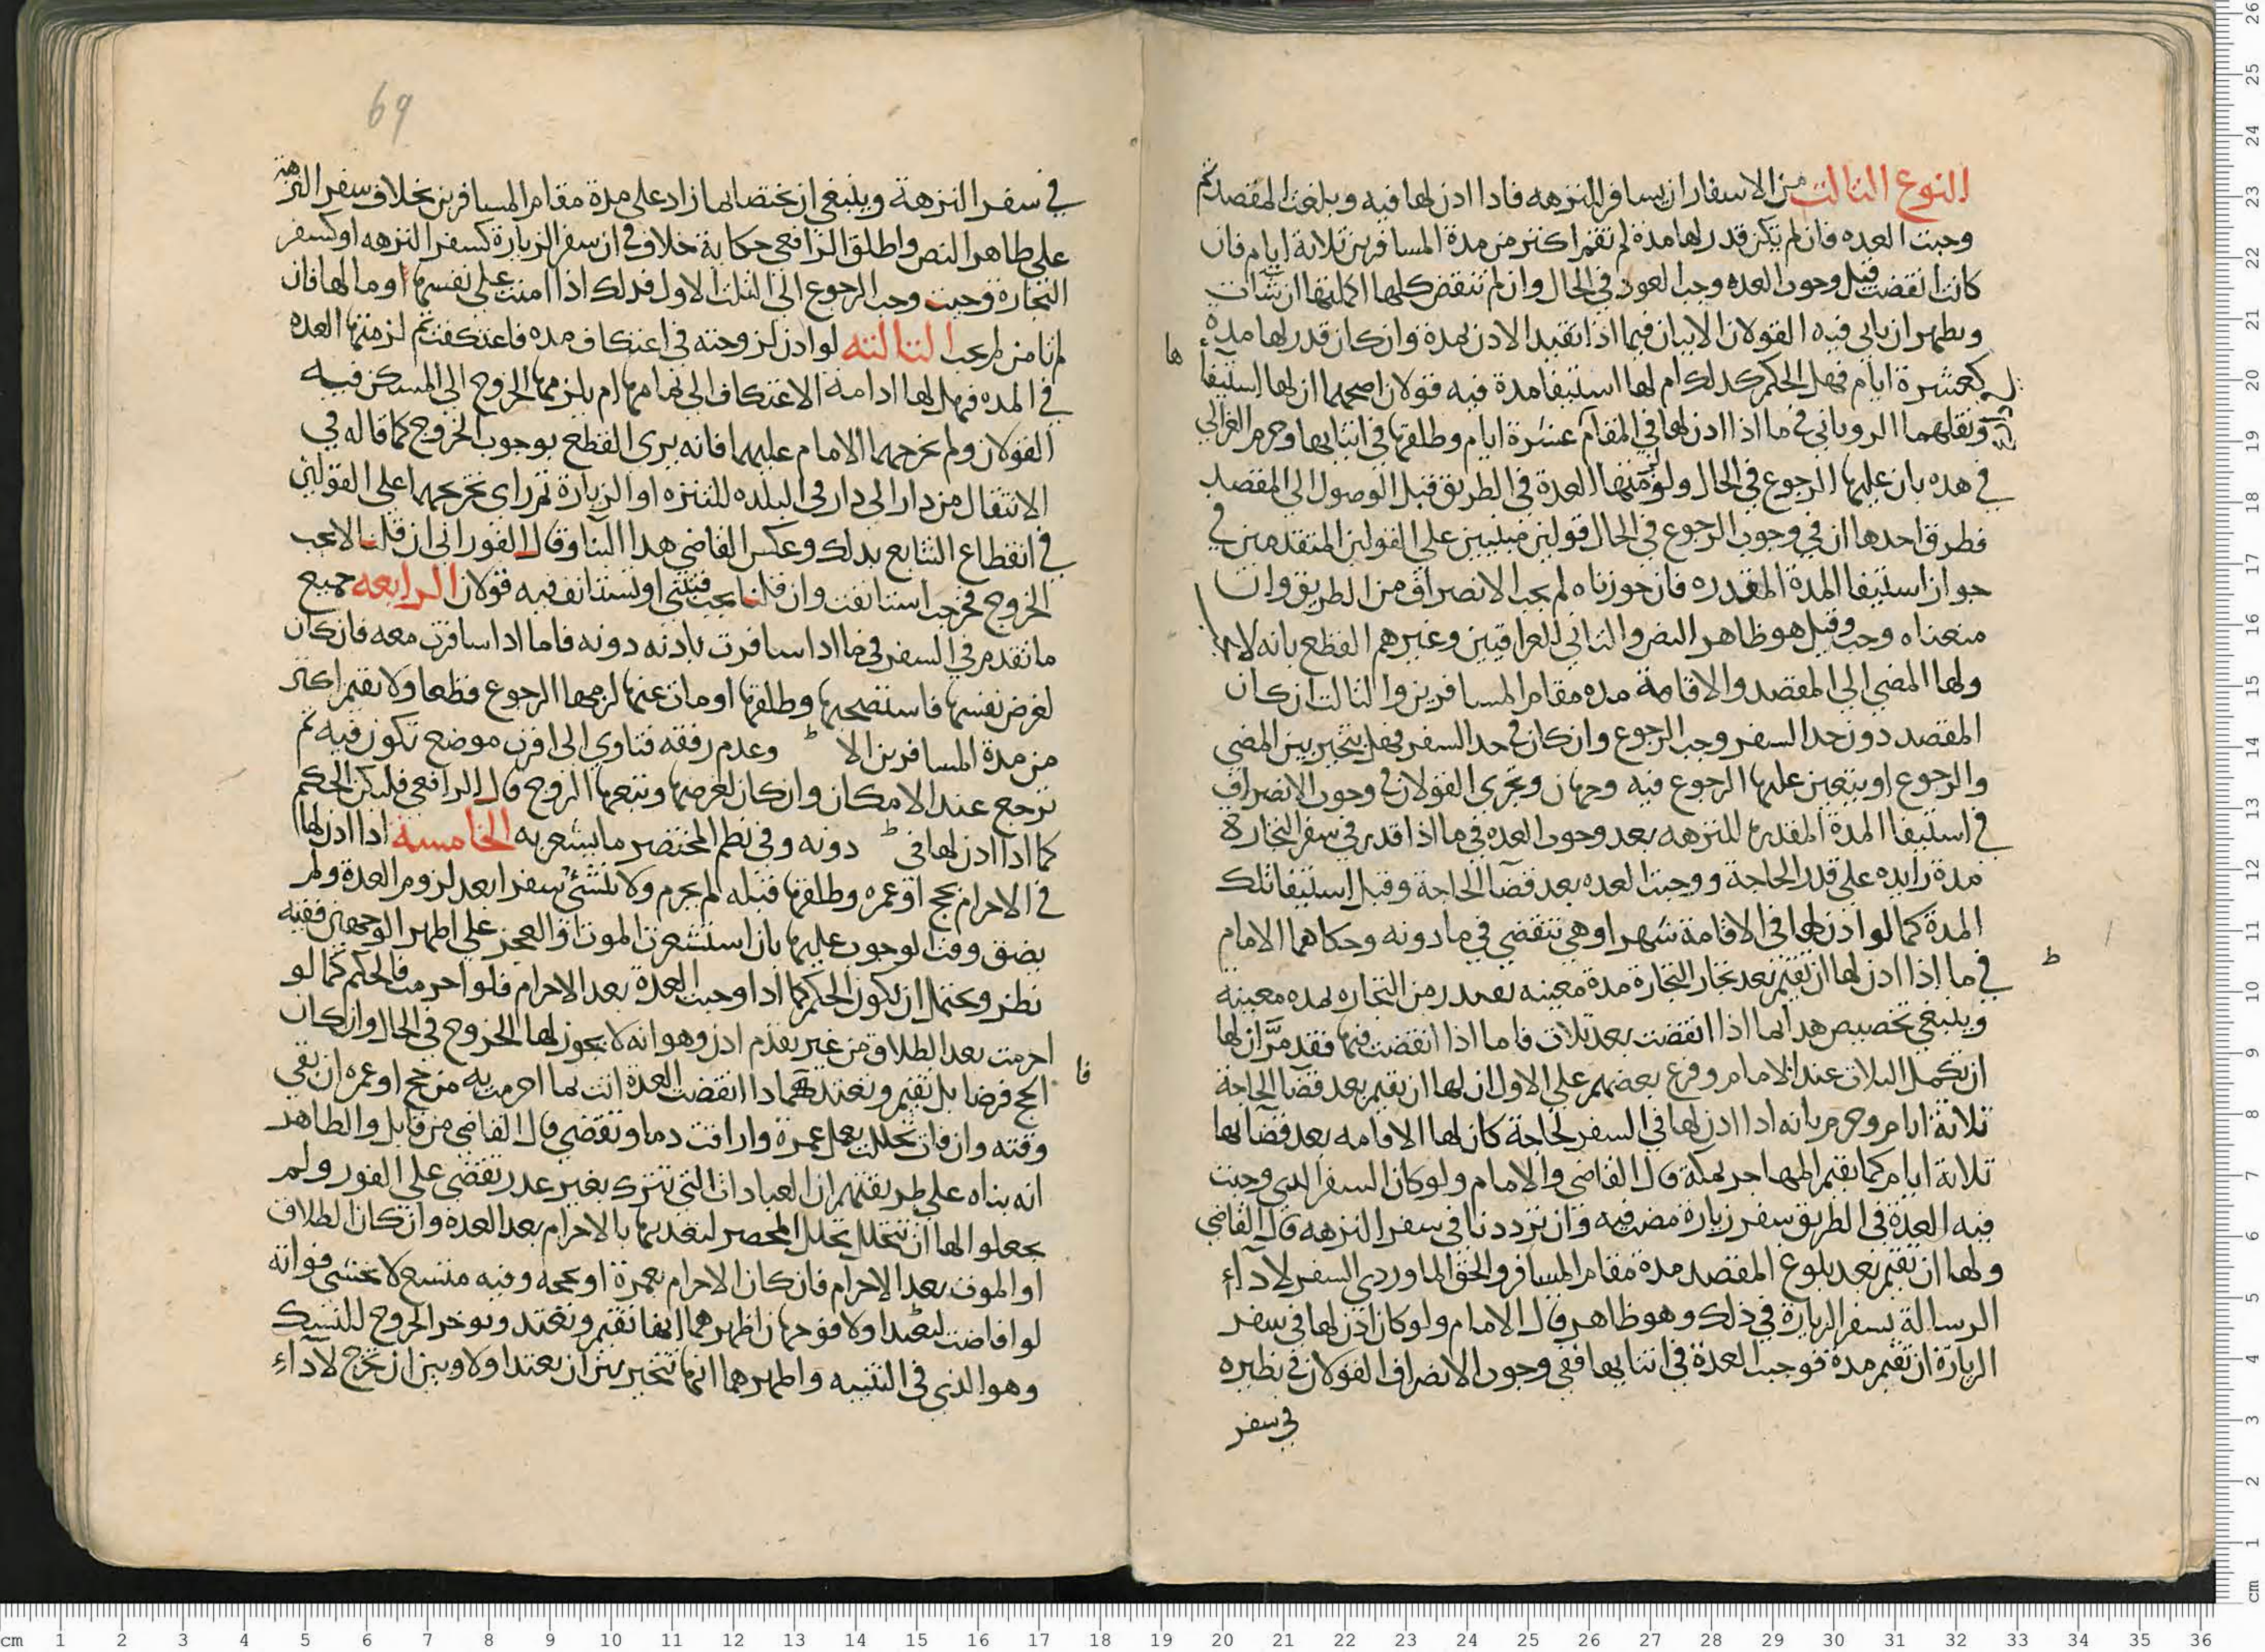 النوع الثالث من الاسفار ان يسافر للنزهه فاذا اذن لها فيه وبلغت المقصد ثم
وجبت العده فان لم يكن قدر لها مدة لم تقم اكثر من مدة المسافرين ثلاثة ايام فان
كانت انقضت قبل وجوب العده وجب العود في الحال وان لم تنقض كلها اكملتها ان شات
ويظهر ان ياتي فيه القولان الاتيان فيما اذا تقيد الاذن بمدة وان كان قدر لها مدة
كعشرة ايام فهل الحكم كذلك ام لها استيفا مدة فيه قولان اصحهما ان لها استيفا
ها
ونقلهما الروياني في ما اذا اذن لها في المقام عشرة ايام وطلقها في اثنايها وجزم الغزالي
في هذه بان عليها الرجوع في الحال ولو لزمتها العدة في الطريق قبل الوصول الى المقصد
فطرق احدها ان في وجوب الرجوع في الحال قولين مبنيين على القولين المتقدمين في
جواز استيفا المدة المقدره فان جوزناه لم يجب الانصراف من الطريق وان
منعناه وجب وقيل هو ظاهر النص والثاني للعراقيين وغيرهم القطع بانه لا
ولها المضي الى المقصد والاقامة مده مقام المسافرين والثالث ان كان
المقصد دون حد السفر وجب الرجوع وان كان في حد السفر فهل يتخير بين المضي
والرجوع او يتعين عليها الرجوع فيه وجهان وتجرى القولان في وجوب الانصراف
في استيفا المدة المقدره للنزهه بعد وجوب العده في ما اذا قدر في سفر التجارة
مدة زايده على قدر الحاجة ووجبت العده بعد قضا الحاجة وقبل استيفا تلك
المدة كما لو اذن لها في الاقامة شهرا وهي تنقضي في ما دونه وحكاهما الامام
ط
في ما اذا اذن لها ان تقيم بعد نجاز التجارة مدة معينه بعدد من التجاره لمده معينة
وينبغي تخصيص هذا بما اذا انقضت بعد ثلاث فاما اذا انقضت فيها فقد مر ان لها
ان تكمل الثلاث عند الامام وفرع بعضهم على الاول ان لها ان تقيم بعد قضا الحاجة
ثلاثة ايام وجزم بانه اذا اذن لها في السفر لحاجة كان لها الاقامه بعد قضايها
ثلاثة ايام كما يقيم المهاجر بمكة قال القاضي والامام ولو كان السفر الذي وجبت
فيه العدة في الطريق سفر زيارة مضت فيه وان ترددنا في سفر النزهه قال القاضي
ولها ان تقيم بعد بلوغ المقصد مدة مقام المسافر والحق الماوردي السفر لاداء
الرسالة بسفر الزيارة في ذلك وهو ظاهر قال الامام ولو كان اذن لها في سفر
الزيارة ان تقيم مدة فوجبت العدة في اثنايها ففي وجوب الانصراف القولان في نظيره
في سفر
69
في سفر النزهة وينبغي ان يختصا بما زاد على مدة مقام المسافرين بخلاف سفر النزهة
على ظاهر النص واطلق الرافعي حكاية خلاف في ان سفر الزيارة كسفر النزهه او كسفر
التجارة وحيث وجب الرجوع الى الثلث الاول فذلك اذا امنت على نفسها او مالها فان
لم تامن لم يجب الثالثه لو اذن لزوجته في اعتكاف مده فاعتكفت ثم لزمتها العده
في المده فهل لها ادامة الاعتكاف الى تمامها ام يلزمها الخروج الى المسكن فيه
القولان ولم يخرجهما الامام عليهما فانه يرى القطع بوجوب الخروج كما قاله في
الانتقال من دار الى دار في البلده للتنزه او الزيارة ثم راى تخريجهما على القولين
في انقطاع التتابع بذلك وعكس القاضي هذا البنا وقال الفوراني ان قلنا لا يجب
الخروج فخرجت استانفت وان قلنا يجب فتبني او تستانف فيه قولان الرابعه جميع
ما تقدم في السفر في ما اذا سافرت باذنه دونه فاما اذا سافرت معه فان كان
لغرض نفسه فاستصحبها وطلقها او مات عنها لزمها الرجوع قطعا ولا تقيم اكثر
من مدة المسافرين الا ط وعدم رفقه فتاوي الى اقرب موضع تكون فيه ثم
ترجع عند الامكان وان كان لغرضها وتبعها الزوج قال الرافعي فليكن الحكم
كما اذا اذن لها في ط دونه وفي نظم المختصر ما يشعر به الخامسة اذا اذن لها
في الاحرام بحج او عمره وطلقها قبله لم تحرم ولا تنشئ سفرا بعد لزوم العدة ولم
يضق وقت الوجوب عليها بان استشعرت الموت او العجز على اظهر الوجهين ففيه
نظر ويحتمل ان يكون الحكم كما اذا وجبت العدة بعد الاحرام فلو احرمت فالحكم كما لو
احرمت بعد الطلاق من غير تقدم اذن وهو انه لا يجوز لها الخروج في الحال وان كان
فا
الحج فرضا بل تقيم وتعتد فاذا انقضت العدة اتت بما احرمت به من حج او عمره ان بقي
وقته وان فات تحللت بعمل عمرة واراقت دما وتقضي قال القاضي من قابل والظاهر
انه بناه على طريقتهم ان العبادات التي تترك بغير عذر تقضى على الفور ولم
يجعلوا لها ان تتحلل تحلل المحصر لتعديها بالاحرام بعد العده وان كان الطلاق
او الموت بعد الاحرام فان كان الاحرام بعمرة او بحجه وفيه متسع لا تخشى فواته
لو افاضت لتعتد اولا فوجهان اظهرهما انها تقيم وتعتد وتوخر الخروج للنسك
وهو الذي في التنبيه واظهرهما انها تتخير بين ان تعتد اولا وبين ان تخرج لاداء